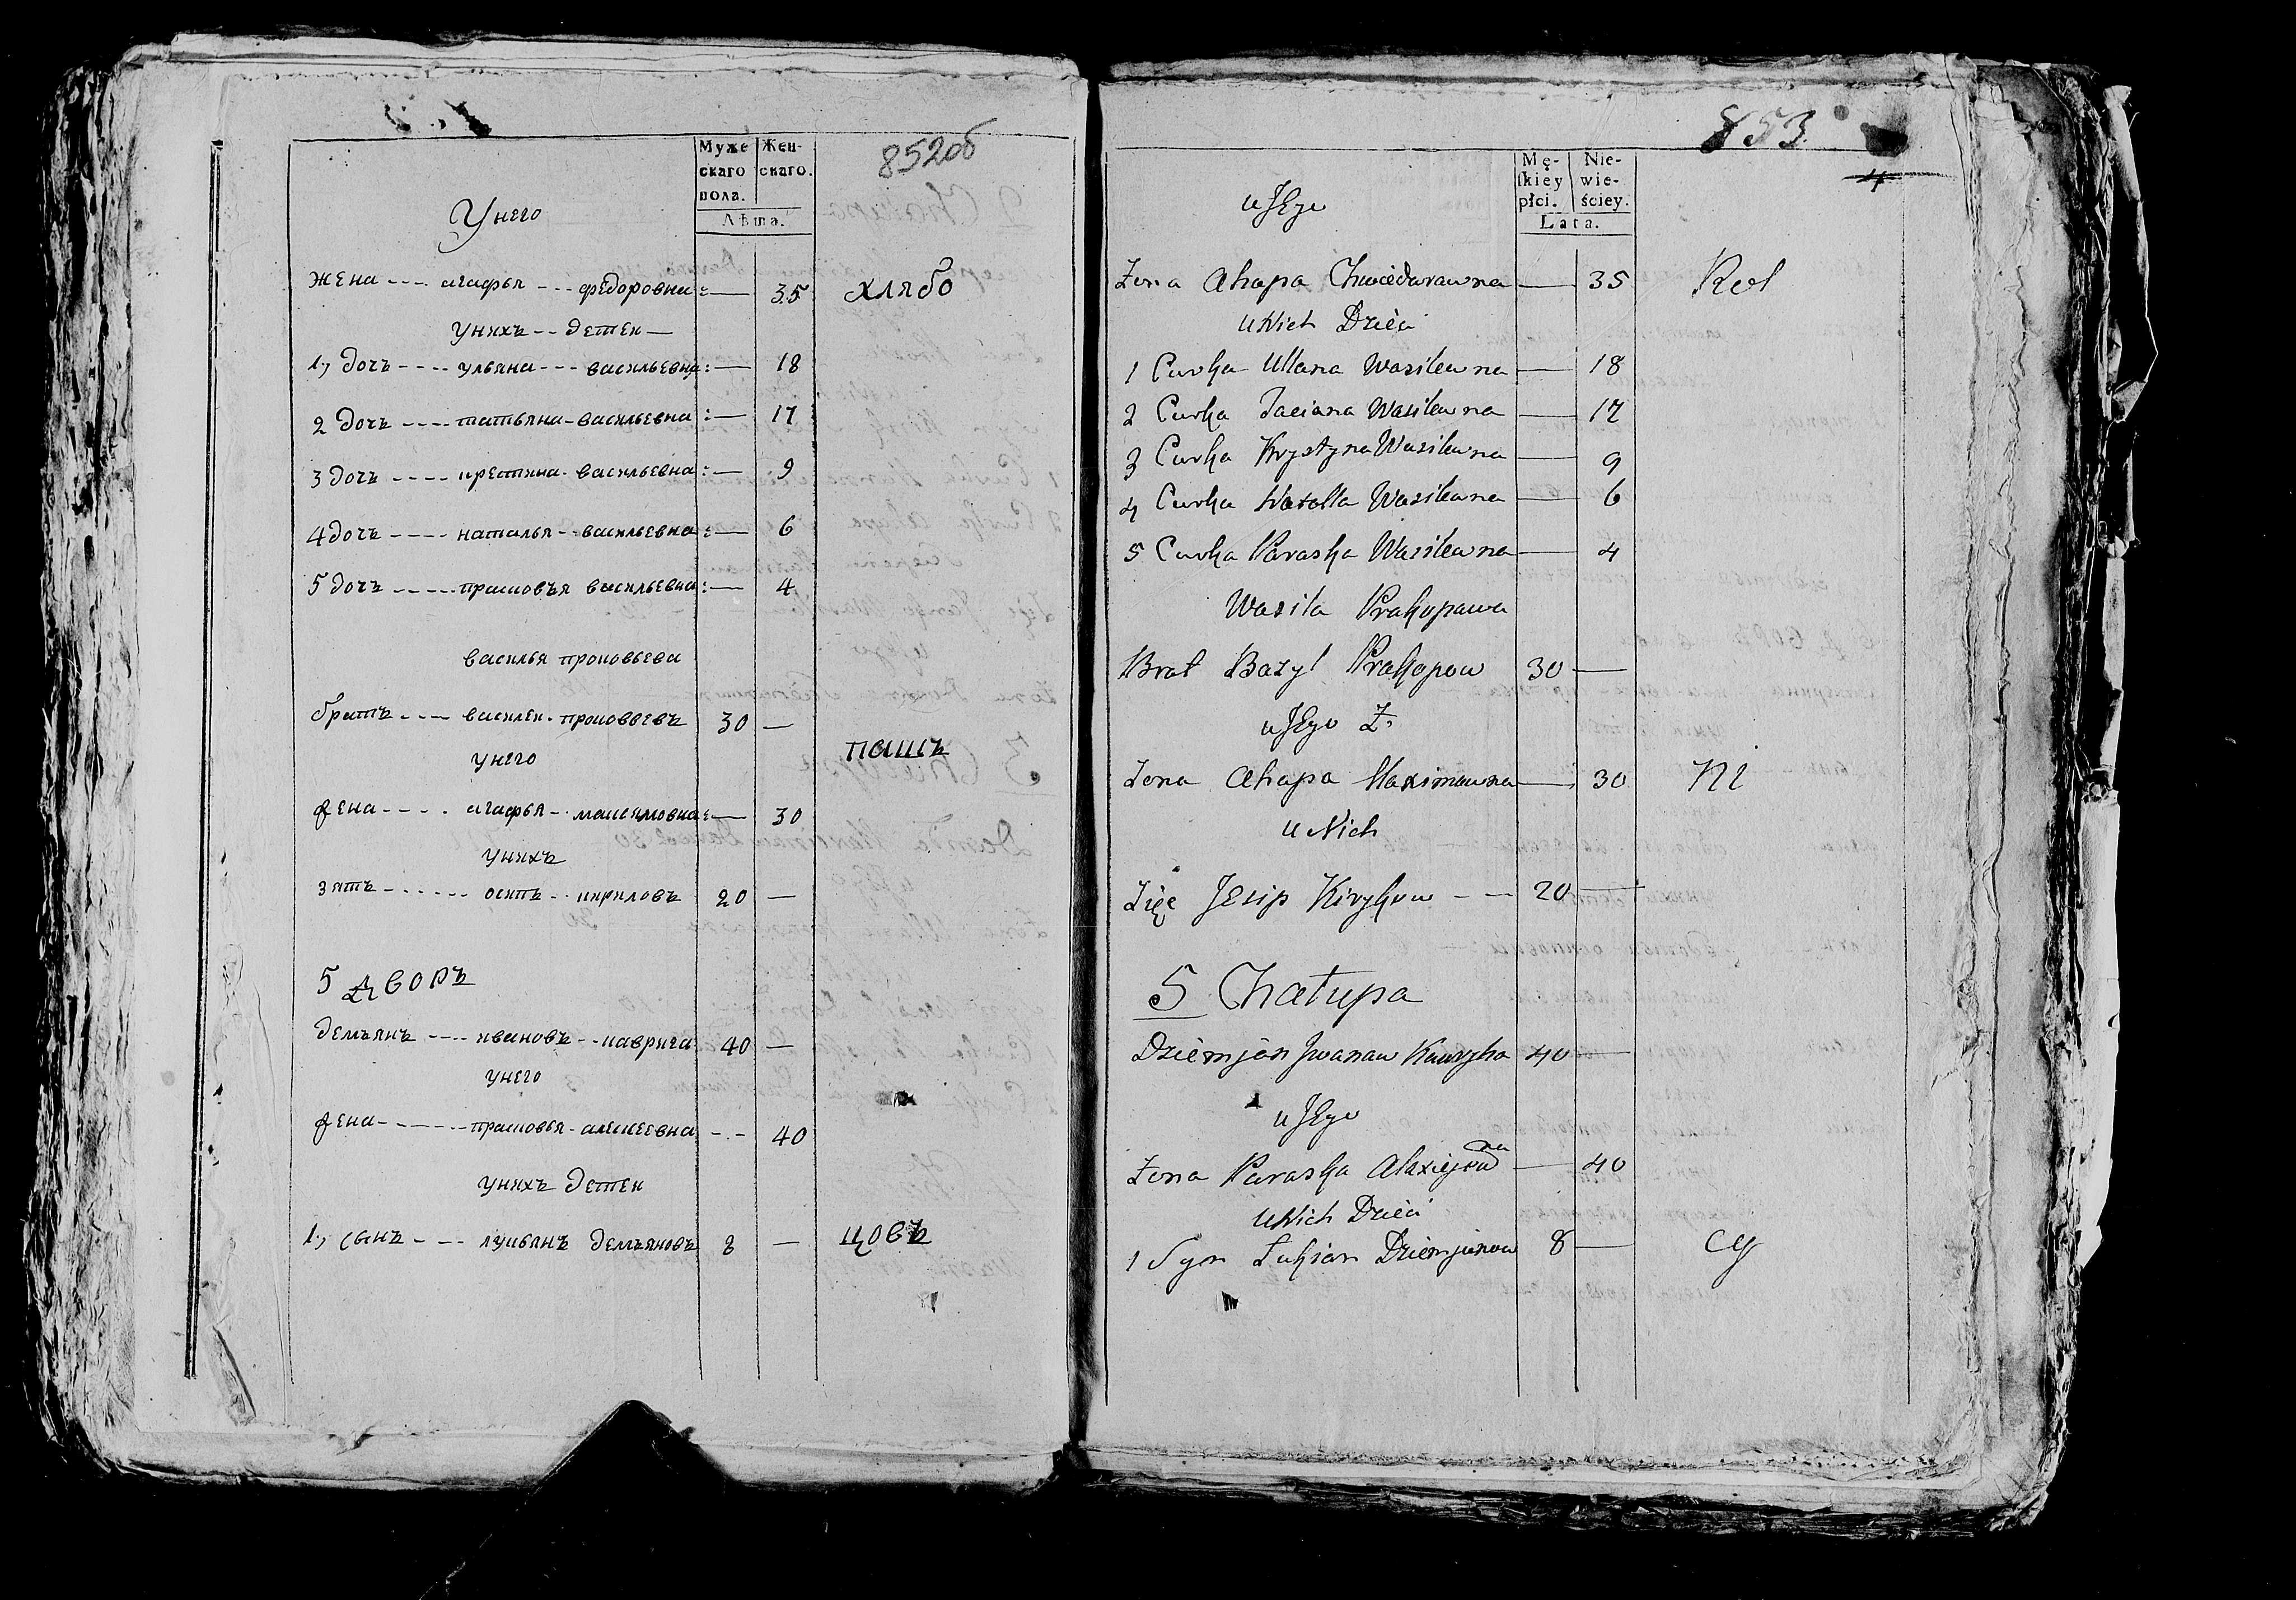 Муже
скаго
пола.
Жен-
скаго.
Лѣта.
852об
Унего
жена --- агафья --- федоровна : — 35 хлябо
унихъ -- детеи —
1, дочь ---- ульяна --- васильевна : — 18
2 дочь ---- татьяна - васильевна : — 17
3 дочь ---- крестина - васильевна : — 9
4 дочь ---- наталья -- васильевна : — 6
5 дочь ---- прасковья васильевна : — 4
василья прокофьева
братъ --- василеи - прокофьевъ 30 —
унего
пашъ
жена ---- агафья -- максимовна : — 30
унихъ
зять ------ осипъ -- кириловъ 20 —
5 дворъ
демьянъ ---- ивановъ -- каврига 40 —
унего
жена ------ прасковья - алексеевна -- 40
унихъ детеи
1, сынъ --- лукьянъ демьяновъ 8 — цовъ
853
4
Mę-
ſkiey
płci.
Nie-
wie-
ściey.
Lata.
u JEgo
Żona Ahapa Chwiedarawna — 35 Rol
u Nich Dzieci
1 Curka Ullana Wasilewna — 18
2 Curka Taciana Wasilewna — 17
3 Curka Krystyna Wasilewna — 9
4 Curka Natalla Wasilewna — 6
5 Curka Paraska Wasilewna — 4
Wasila Prakopawa
Brat Bazyl Prakopow 30 —
u JEgo Ż
Żona Ahapa Maximawna — 30 Ni
u Nich
Zięć JEsip Kirykow -- 20 —
5 Chałupa
Dziemjan Jwanaw Kauryha 40 —
u JEgo
Żona Paraska Alaxiejowna — 40
u Nich Dzieci
1 Syn Łukian Dziemjanow 8 — cy